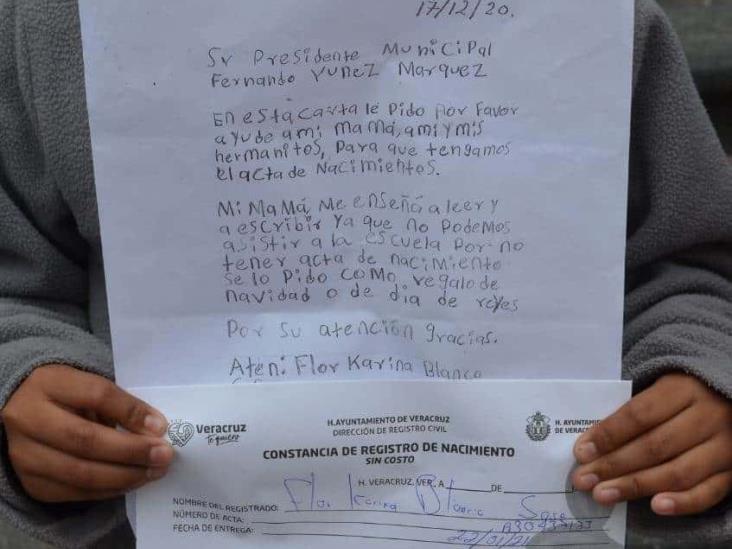 17/12/20.
Sr Presidente Municipal
Fernando Yuñez Marquez
En esta carta le Pido Por Favor
ayude a mi mamá, a mi y mis
hermanitos, Para que tengamos
el acta de Nacimientos.
Mi Mamá, Me enseñó a leer y
a escribir ya que no Podemos
asistir a la escuela Por no
tener acta de nacimiento
Se lo Pido como regalo de
navidad o de dia de reyes
Por Su atención gracias.
Aten: Flor Karina Blanco
Veracruz
Te quiero
H.AYUNTAMIENTO DE VERACRUZ
DIRECCIÓN DE REGISTRO CIVIL
H. AYUNTAMI
DE VERAC
CONSTANCIA DE REGISTRO DE NACIMIENTO
SIN COSTO
H. VERACRUZ, VER. A DE
NOMBRE DEL REGISTRADO: Flor Karina Blanco
NÚMERO DE ACTA:
FECHA DE ENTREGA: 22/01/21